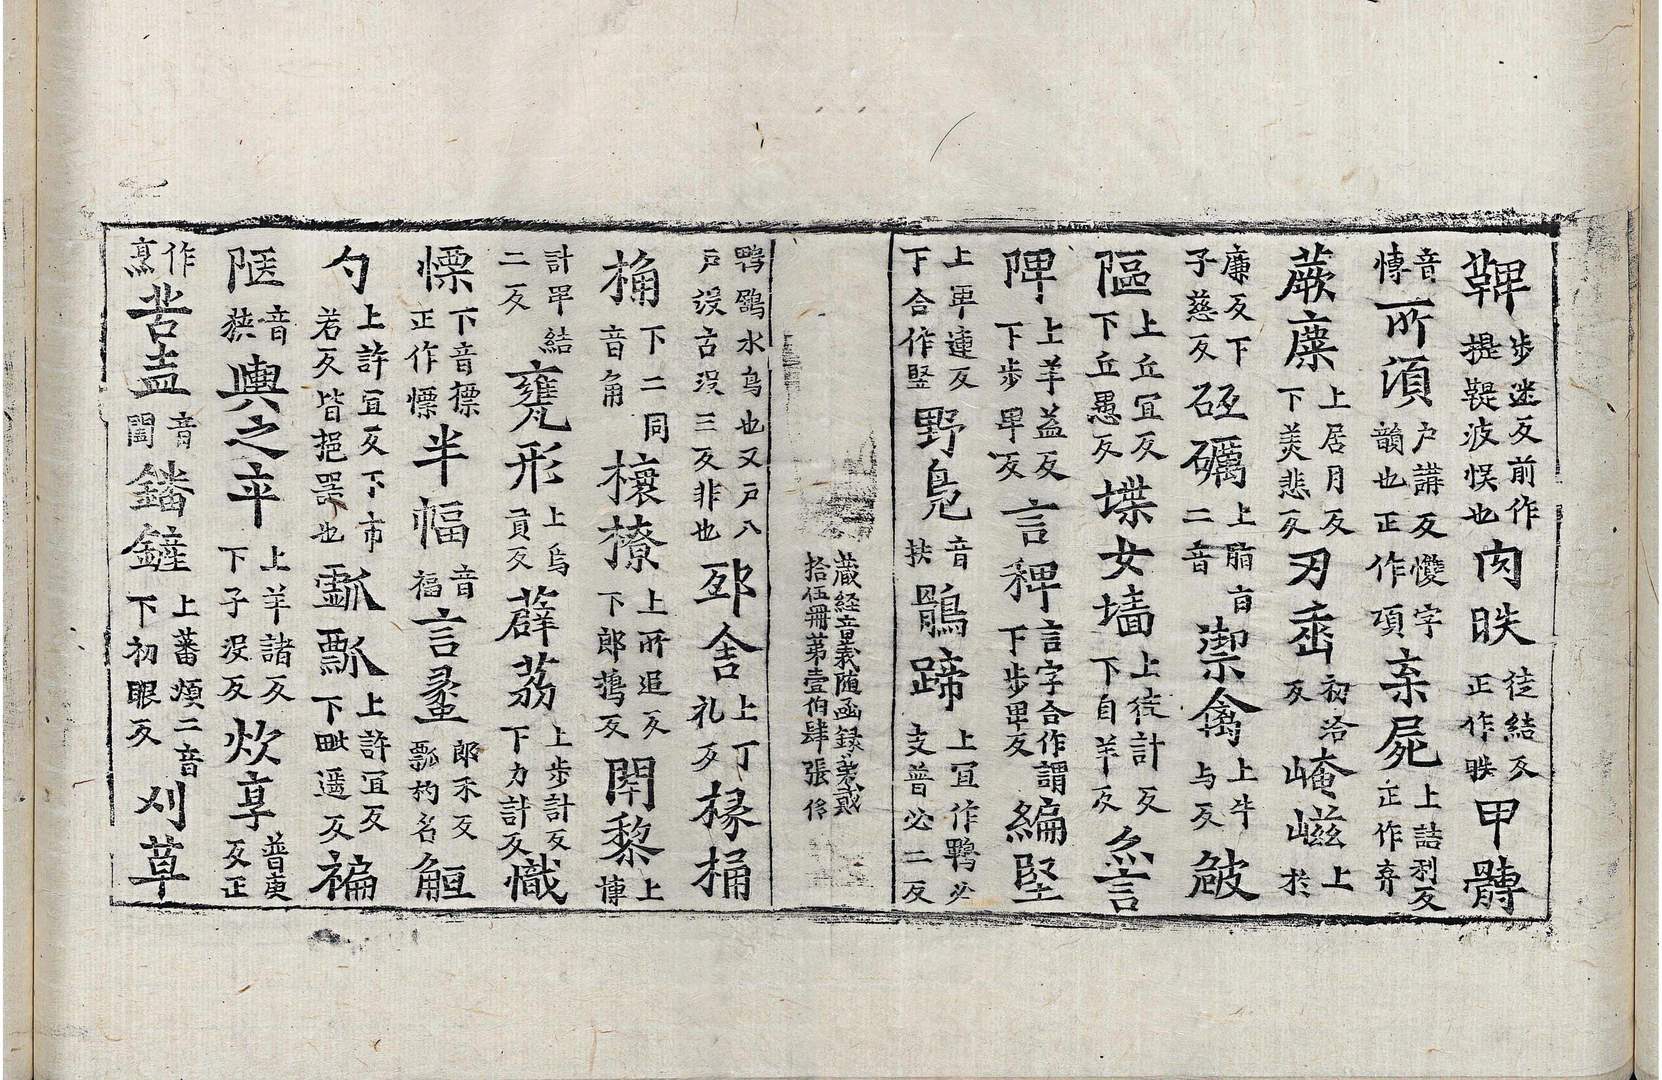 鞞步迷反前作提鞮波悮也肉昳徒結反正作胅甲髆
音愽所湏户講反㦬字韻也正作項棄屍上詰利反正作弃
蕨麋上居月反下美悲反刃𡍼初洽反崦嵫上於
廉反下子慈反砥礪上脂旨二音禦禽上牛与反皷
嶇上丘宜反下丘愚反堞女墙上徒計反下自羊反訡
陴上羊益反下步卑反言稗言字合作謂下步卑反編堅
上卑連反下合作竪野凫音扶鶻蹄上宜作鸭必支普必二反
鸭鷄水鳥也又戸八戸没古没三反非也邳舍上丁礼反椽桶
桷下二同音角欀橑上所追反下郎擣反閉黎上博
計畢結二反甕形上烏貢反薜荔上步計反下力計反幟
慓下音摽正作慓半幅音福言蠡郎禾反瓢杓名觛
勺上許宜反下市若反皆挹器也㼁瓢上許宜反下毗遥反褊
陿音狹輿之卒上羊諸反下子没反炊享普庚反正
作烹苦盍音闔鐇鏟上蕃煩二音下初眼反刈草
藏經音義随函録苐貳
拾伍冊苐壹伯肆張伶